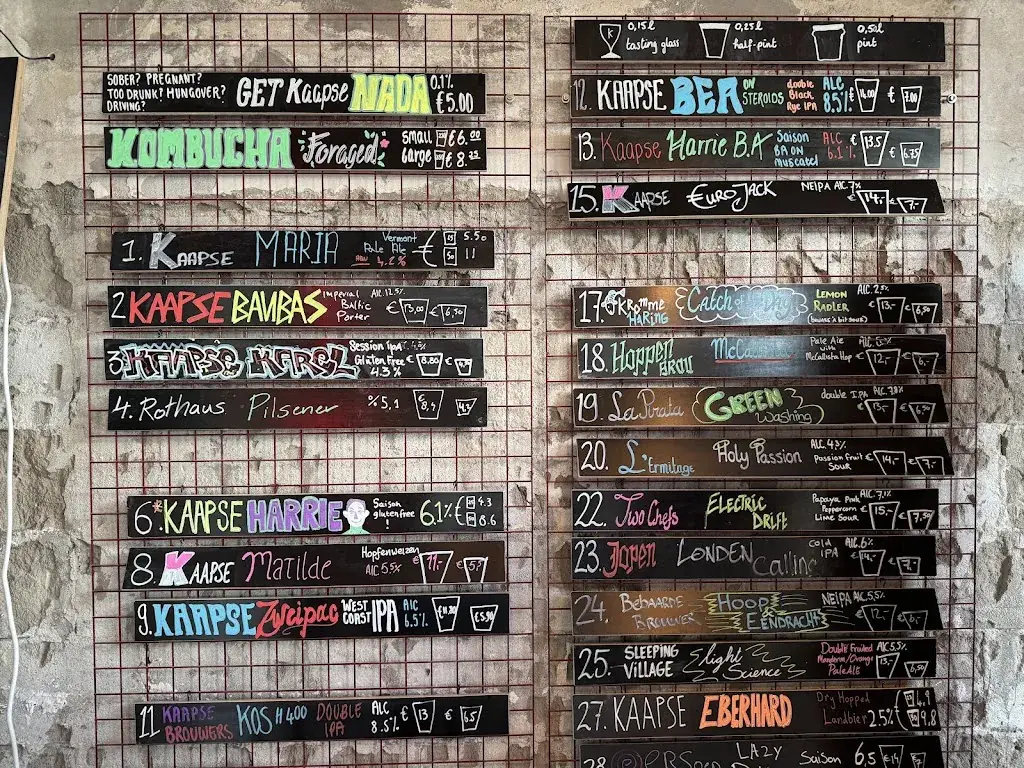 SOBER? PREGNANT?
TOO DRUNK? HUNGOVER?
DRIVING?
GET Kaapse NADA 0.1% €5.00
KOMBUCHA Foraged small €6.00
large €8.25
1. KAAPSE MARIA Vermont Pale Ale 4.2% € 5.50
11
2 KAAPSE BAMBAS Imperial Baltic Porter ALC. 12.5% €13,00 €6,50
3 KAAPSE KAREL Session IPA
Gluten Free
4.3% € 8,80
4. Rothaus Pilsener % 5,1 €8,4 4,2
6* KAAPSE HARRIE Saison gluten free! 6.1% € 4.3
8.6
8. KAAPSE Matilde Hopfenweizen
ALC 5,5% €11,- €5,5
9. KAAPSE Zweipac WEST COAST IPA ALC 6.5% €11,80 €5,90
11 KAAPSE BROUWERS KOS H400 DOUBLE IPA ALC 8.5% € 13 € 6,5
0,15l tasting glass
0,25l half-pint
0,50l pint
12. KAAPSE BEA ON STEROIDS double Black Rye IPA ALC 8.5% € 14,00 € 7.00
13. Kaapse Harrie B.A Saison BA ON MUSCATEL ALC 6.1% € 13.5 € 6.75
15. KAAPSE €uroJACK NEIPA ALC. 7% € 14,- € 7,-
17. KROMME HARING Catch of LEMON RADLER ALC. 2.5%
€ 13,- € 6,50
18. Hoppenbrou Pale Ale with McCallister Hop € 12,- € 6,-
19. La Pirata GREEN Washing double IPA ALC. 7.8% € 13,- € 6,50
20. L'Ermitage Holy Passion ALC. 4.3%
Passion Fruit Sour € 14,- € 7,-
22. Two Chefs ELECTRIC DRIFT Papaya Pink Peppercorn Lime Sour ALC. 7,1% € 15,- € 7.50
23. Jopen LONDEN Calling Cold IPA ALC. 6% € 14,- € 7,-
24. Bebaarde Brouwer HOOP & EENDRACHT NEIPA ALC. 5,5% € 12,- € 6,-
25. SLEEPING VILLAGE Slight Science Double Fruited Mandarin/Orange Pale Ale ALC 5,5% € 13,- € 6,50
27. KAAPSE EBERHARD Dry Hopped
Landbier 2.5% € 4.9
9.8
28 LAZY Saison 6,5